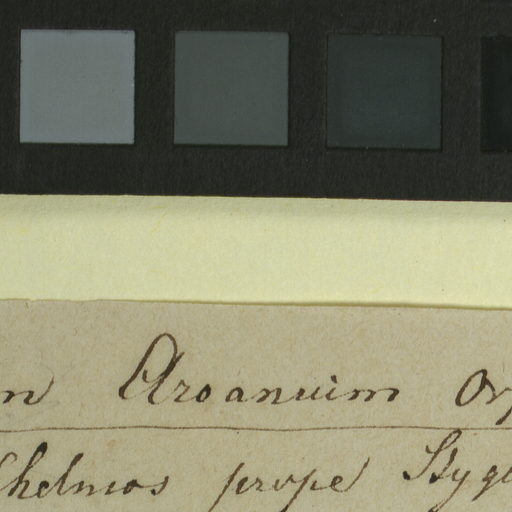 m Aroanuim Or
Chelmos prope Styg